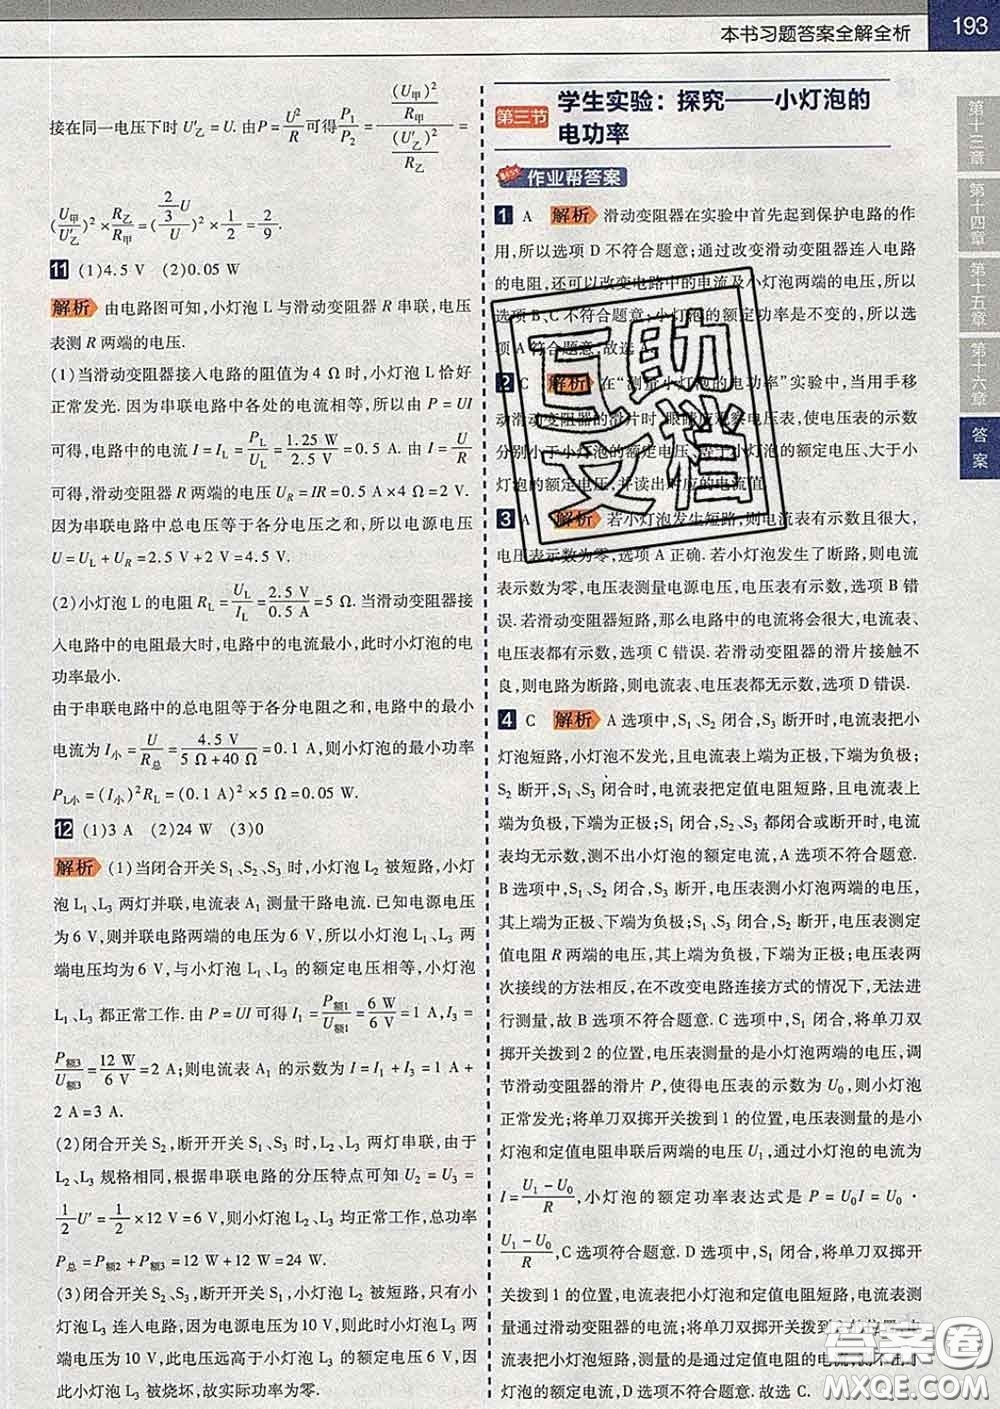 本书习题答案全解全析
193
接在同一电压下时 U'乙 = U. 由 P = U²/R 可得 P₁/P₂ = ((U甲)²/R甲)/((U'乙)²/R乙) =
(U甲/U'乙)² × R乙/R甲 = ((2/3 U)/U)² × 1/2 = 2/9.
11 (1)4.5 V (2)0.05 W
解析 由电路图可知,小灯泡 L 与滑动变阻器 R 串联,电压
表测 R 两端的电压.
(1)当滑动变阻器接入电路的阻值为 4 Ω 时,小灯泡 L 恰好
正常发光. 因为串联电路中各处的电流相等,所以由 P = UI
可得,电路中的电流 I = I_L = P_L/U_L = 1.25 W/2.5 V = 0.5 A. 由 I = U/R
可得,滑动变阻器 R 两端的电压 U_R = IR = 0.5 A × 4 Ω = 2 V.
因为串联电路中总电压等于各分电压之和,所以电源电压
U = U_L + U_R = 2.5 V + 2 V = 4.5 V.
(2)小灯泡 L 的电阻 R_L = U_L/I_L = 2.5 V/0.5 A = 5 Ω. 当滑动变阻器接
入电路中的电阻最大时,电路中的电流最小,此时小灯泡的电
功率最小.
由于串联电路中的总电阻等于各分电阻之和,电路中的最小
电流为 I小 = U/R总 = 4.5 V/(5 Ω + 40 Ω) = 0.1 A,则小灯泡的最小功率
P_L小 = (I小)²R_L = (0.1 A)² × 5 Ω = 0.05 W.
12 (1)3 A (2)24 W (3)0
解析 (1)当闭合开关 S₁、S₂、S₃ 时,小灯泡 L₂ 被短路,小灯
泡 L₁、L₃ 两灯并联,电流表 A₁ 测量干路电流. 已知电源电压
为 6 V,则并联电路两端的电压为 6 V,所以小灯泡 L₁、L₃ 两
端电压均为 6 V,与小灯泡 L₁、L₃ 的额定电压相等,小灯泡
L₁、L₃ 都正常工作. 由 P = UI 可得 I₁ = P额1/U额1 = 6 W/6 V = 1 A,I₃ =
P额3/U额3 = 12 W/6 V = 2 A;则电流表 A₁ 的示数为 I = I₁ + I₃ = 1 A +
2 A = 3 A.
(2)闭合开关 S₂,断开开关 S₁、S₃ 时,L₂、L₃ 两灯串联,由于
L₂、L₃ 规格相同,根据串联电路的分压特点可知 U₂ = U₃ =
1/2 U' = 1/2 × 12 V = 6 V,则小灯泡 L₂、L₃ 均正常工作,总功率
P总 = P额2 + P额3 = 12 W + 12 W = 24 W.
(3)闭合开关 S₂、S₃,断开开关 S₁,小灯泡 L₂ 被短路,只有小
灯泡 L₃ 连入电路,因为电源电压为 10 V,则此时小灯泡 L₃ 两
端电压为 10 V,此电压远高于小灯泡 L₃ 的额定电压 6 V,因
此小灯泡 L₃ 被烧坏,故实际功率为零.
第三节 学生实验:探究——小灯泡的
电功率
作业帮答案
1 A 解析 滑动变阻器在实验中首先起到保护电路的作
用,所以选项 D 不符合题意;通过改变滑动变阻器连入电路
的电阻,还可以改变电路中的电流及小灯泡两端的电压,所以
选项 B、C 不符合题意;小灯泡的额定功率是不变的,所以选
项 A 符合题意. 故选 A.
2 C 解析 在“测量小灯泡的电功率”实验中,当用手移
动滑动变阻器的滑片时,眼睛应观察电压表,使电压表的示数
分别小于小灯泡的额定电压、等于小灯泡的额定电压、大于小
灯泡的额定电压,并读出对应的电流值.
3 A 解析 若小灯泡发生短路,则电流表有示数且很大,
电压表示数为零,选项 A 正确. 若小灯泡发生了断路,则电流
表示数为零,电压表测量电源电压,电压表有示数,选项 B 错
误. 若滑动变阻器短路,那么电路中的电流将会很大,电流表、
电压表都有示数,选项 C 错误. 若滑动变阻器的滑片接触不
良,则电路为断路,则电流表、电压表都无示数,选项 D 错误.
4 C 解析 A 选项中,S₁、S₂ 闭合,S₃ 断开时,电流表把小
灯泡短路,小灯泡不发光,且电流表上端为正极,下端为负极;
S₂ 断开,S₁、S₃ 闭合时,电流表把定值电阻短路,且电流表上
端为负极,下端为正极;S₁、S₃ 闭合,S₂ 都闭合或断开时,电流表
均无示数,测不出小灯泡的额定电流,A 选项不符合题意.
B 选项中,S₁、S₂ 闭合,S₃ 断开,电压表测小灯泡两端的电压,
其上端为正极、下端为负极;S₁、S₃ 闭合,S₂ 断开,电压表测定
值电阻 R 两端的电压,其上端为负极、下端为正极;电压表两
次接线的方法相反,在不改变电路连接方式的情况下,无法进
行测量,故 B 选项不符合题意. C 选项中,S₁ 闭合,将单刀双
掷开关拨到 2 的位置,电压表测量的是小灯泡两端的电压,调
节滑动变阻器的滑片 P,使得电压表的示数为 U₀,则小灯泡
正常发光;将单刀双掷开关拨到 1 的位置,电压表测量的是小
灯泡和定值电阻串联后两端的电压 U₁,通过小灯泡的电流为
I = (U₁ − U₀)/R,小灯泡的额定功率表达式是 P = U₀I = U₀ ·
(U₁ − U₀)/R,C 选项符合题意. D 选项中,S₁ 闭合,将单刀双掷开
关拨到 1 的位置,电流表把小灯泡和定值电阻短路,电流表测
量通过滑动变阻器的电流;将单刀双掷开关拨到 2 的位置,
电流表把小灯泡短路,测量的是通过定值电阻的电流,所以无法测
出小灯泡的电流,D 选项不符合题意. 故选 C.
第十三章
第十四章
第十五章
第十六章
答案
互助
文档
答案圈
MXQE.COM